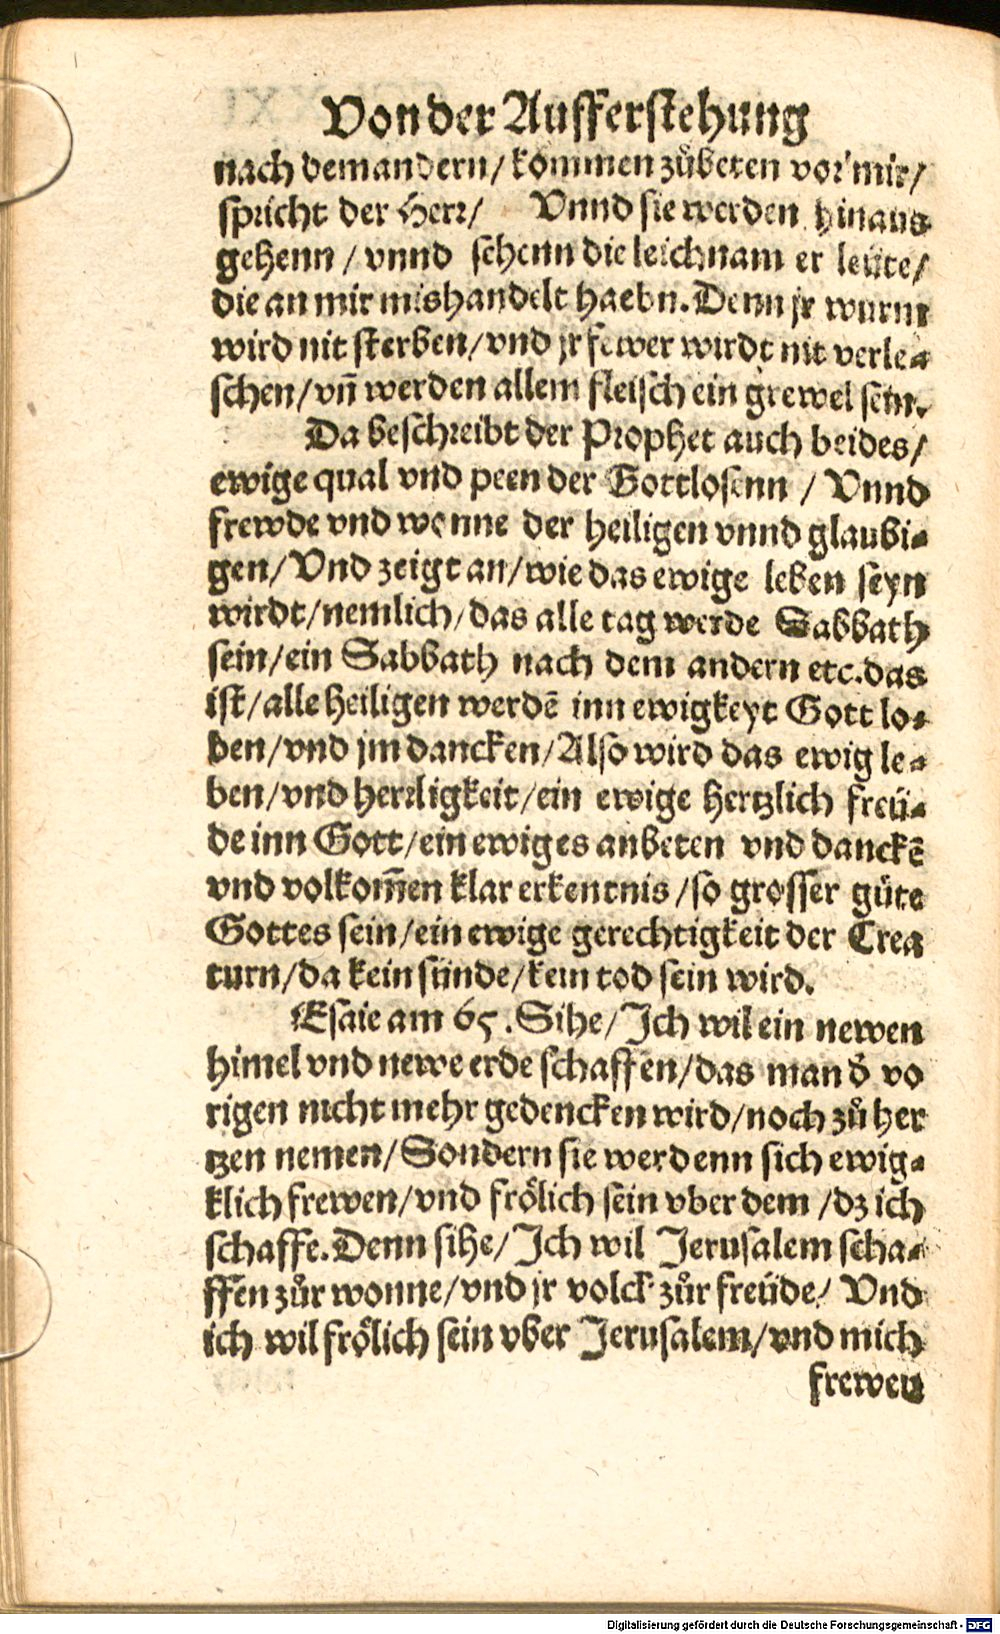 Von der Aufferstehung
nach dem andern/ kommen zůbeten vor mir/
spricht der Herr/ Vnnd sie werden hinaus
gehenn / vnnd sehenn die leichnam er leüte/
die an mir mishandelt haebn. Denn jr wurm
wird nit sterben/ vnd jr fewer wirdt nit verle⸗
schen/ vñ werden allem fleisch ein grewel sein.
Da beschreibt der Prophet auch beides/
ewige qual vnd peen der Gottlosenn / Vnnd
frewde vnd wonne der heiligen vnnd glaubi⸗
gen/ Vnd zeigt an/ wie das ewige leben seyn
wirdt/ nemlich/ das alle tag werde Sabbath
sein/ ein Sabbath nach dem andern etc. das
ist/ alle heiligen werdē inn ewigkeyt Gott lo⸗
ben/ vnd jm dancken/ Also wird das ewig le⸗
ben/ vnd herrligkeit/ ein ewige hertzlich freü⸗
de inn Gott/ ein ewiges anbeten vnd danckē
vnd volkom̄en klar erkentnis / so grosser güte
Gottes sein/ ein ewige gerechtigkeit der Crea
turn/ da kein sünde/ kein tod sein wird.
Esaie am 65. Sihe/ Ich wil ein newen
himel vnd newe erde schaffen/ das man d̕ vo
rigen nicht mehr gedencken wird/ noch zů her
tzen nemen/ Sondern sie werdenn sich ewig⸗
klich frewen/ vnd frölich sein vber dem / dz ich
schaffe. Denn sihe/ Ich wil Jerusalem scha⸗
ffen zůr wonne/ vnd jr volck zůr freüde/ Vnd
ich wil frölich sein vber Jerusalem/ vnd mich
frewen
Digitalisierung gefördert durch die Deutsche Forschungsgemeinschaft - DFG